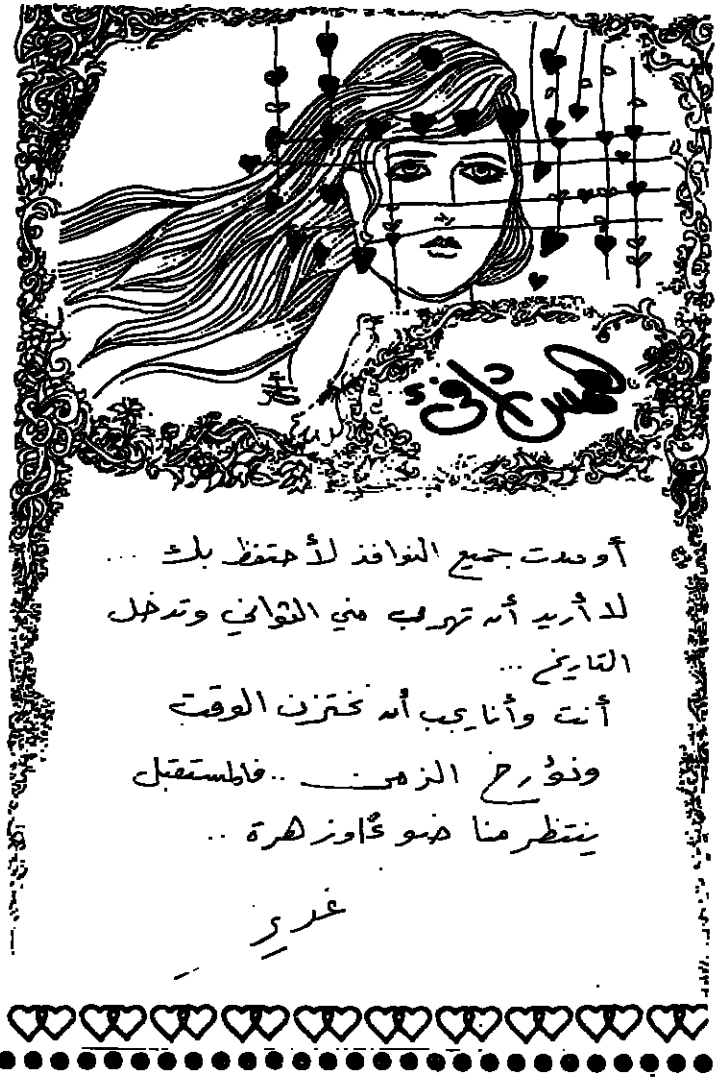 همس دافئ
أوصدت جميع النوافذ لأحتفظ بك ...
لا أريد أن تهرب مني الثواني وتدخل
التاريخ ...
أنت وأنا يجب أن نختزن الوقت
ونؤرخ الزمن .. فالمستقبل
ينتظر منا ضوءاً وزهرة ..
غدير